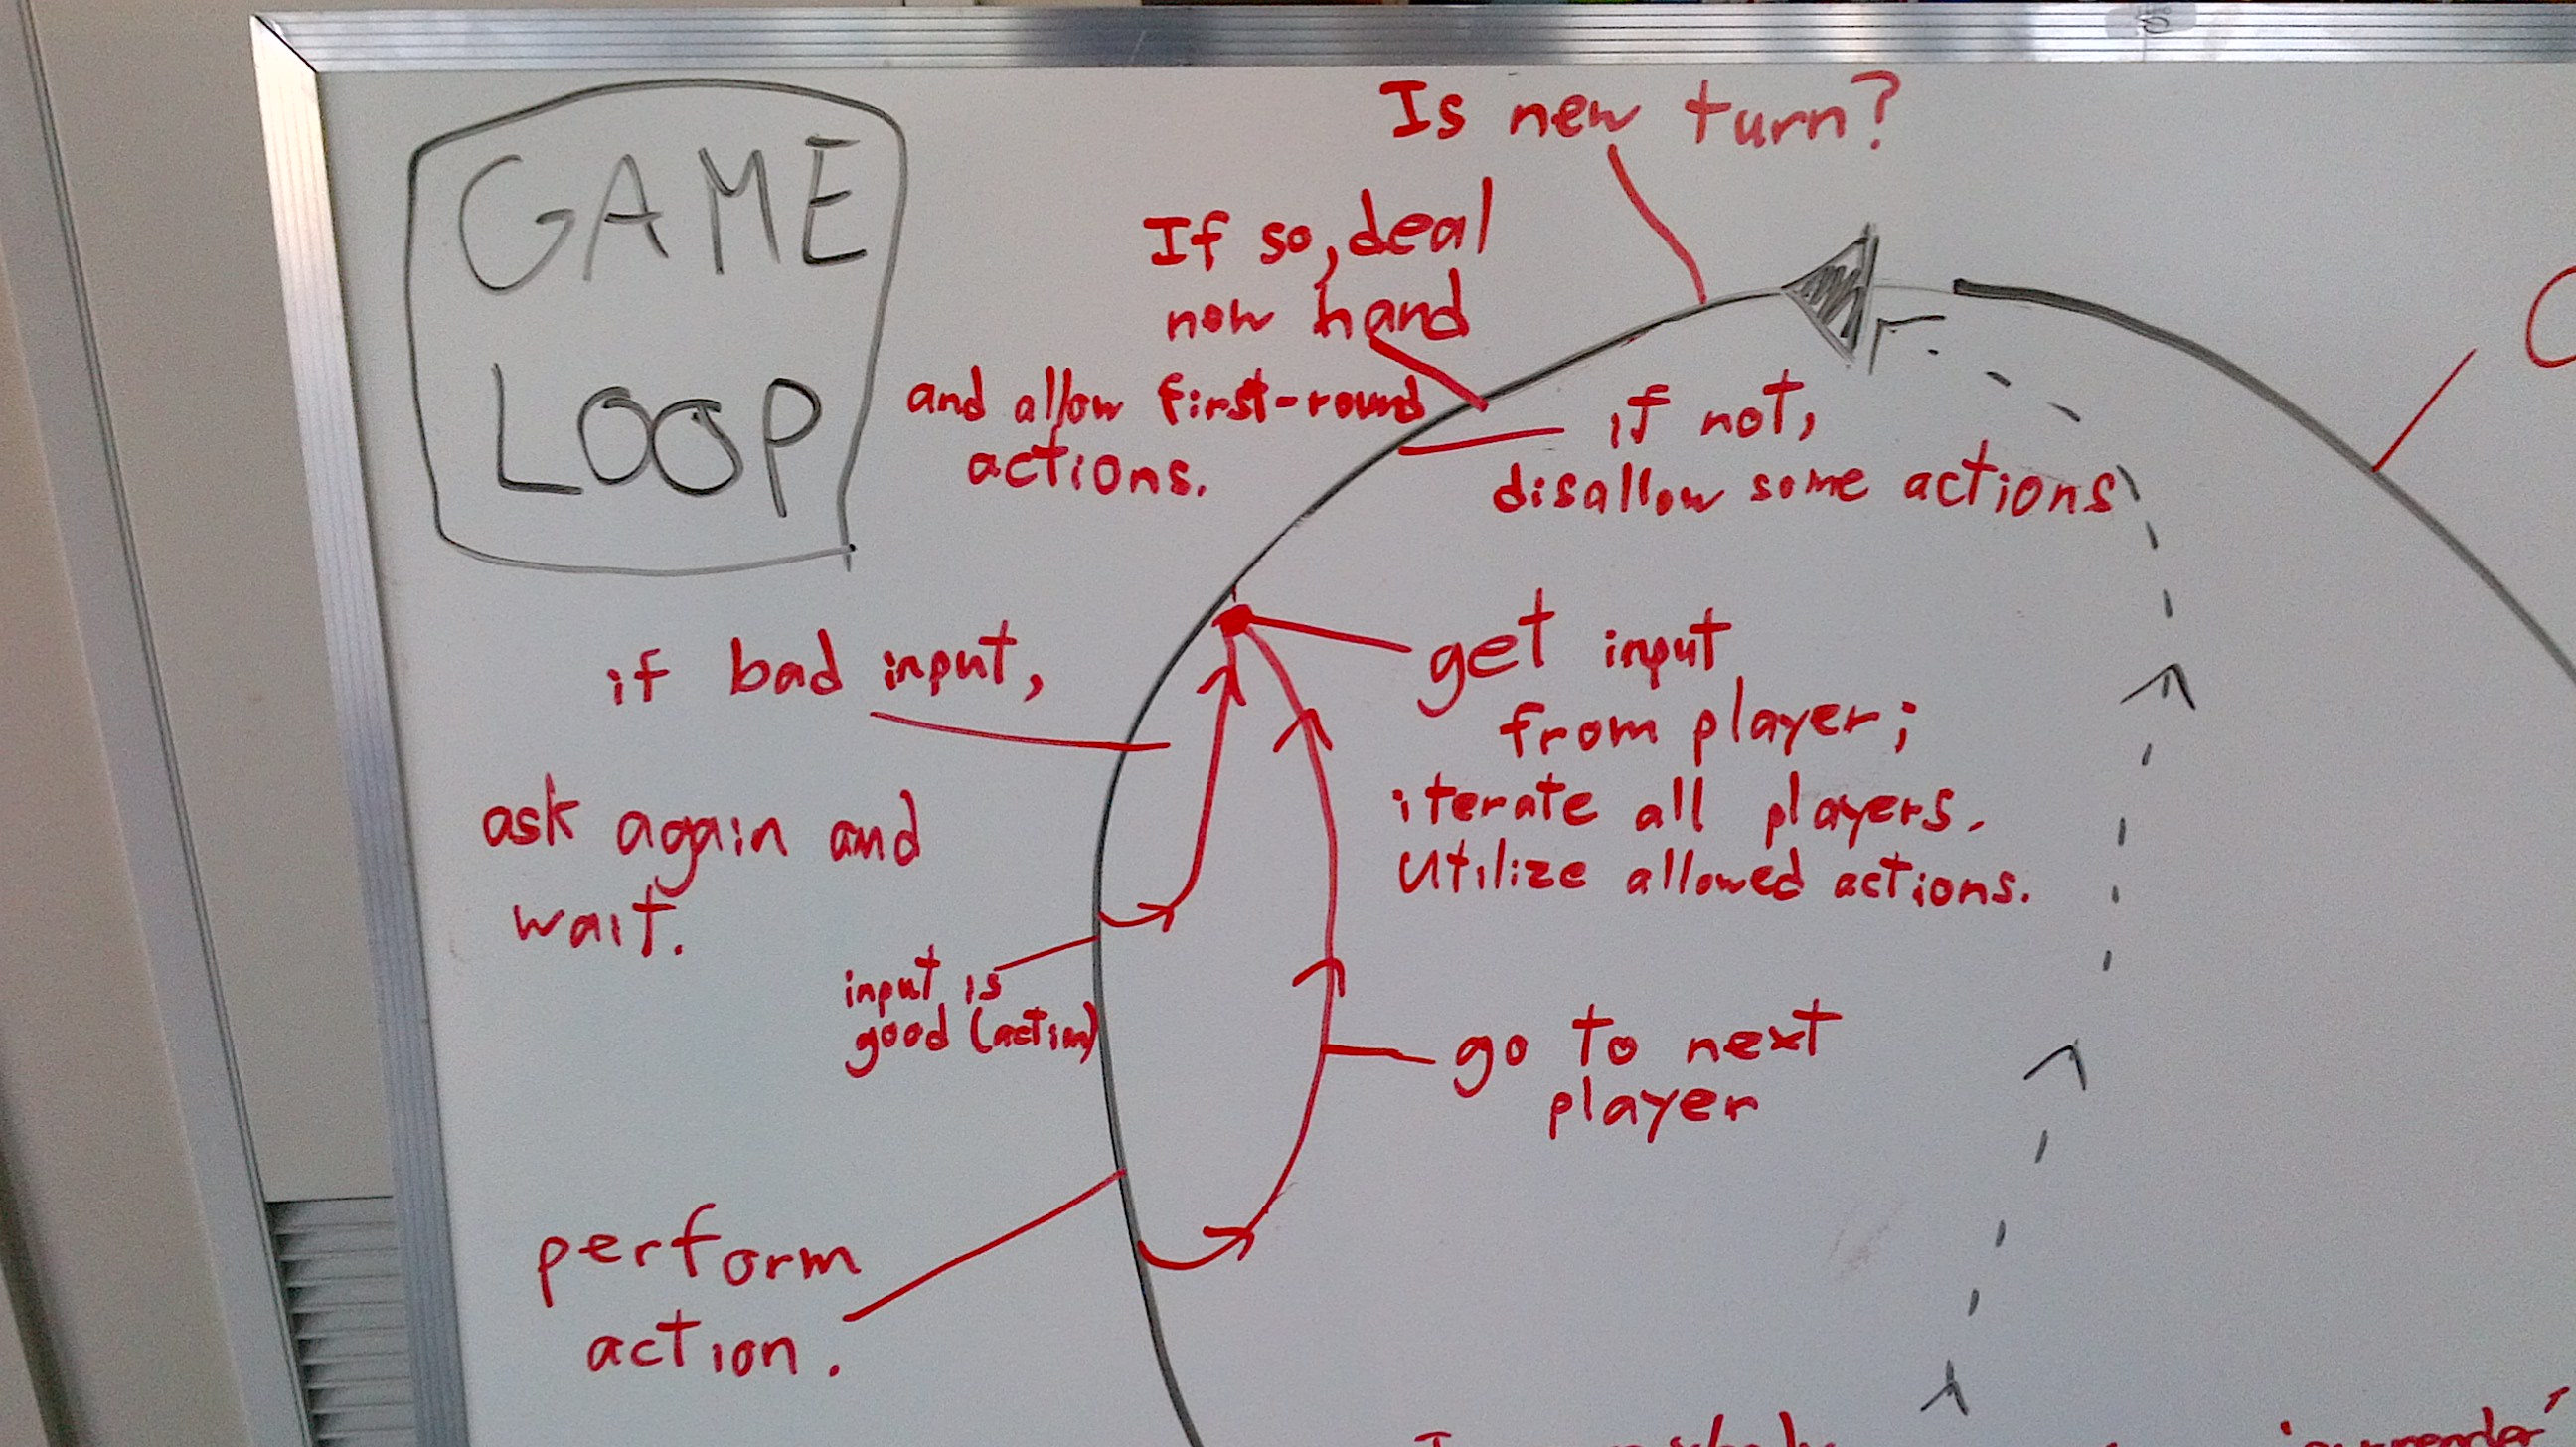 GAME
LOOP
Is new turn?
If so, deal
new hand
and allow first-round
actions.
if not,
disallow some actions
get input
from player;
iterate all players.
Utilize allowed actions.
if bad input,
ask again and
wait.
input is
good (action)
go to next
player
perform
action.